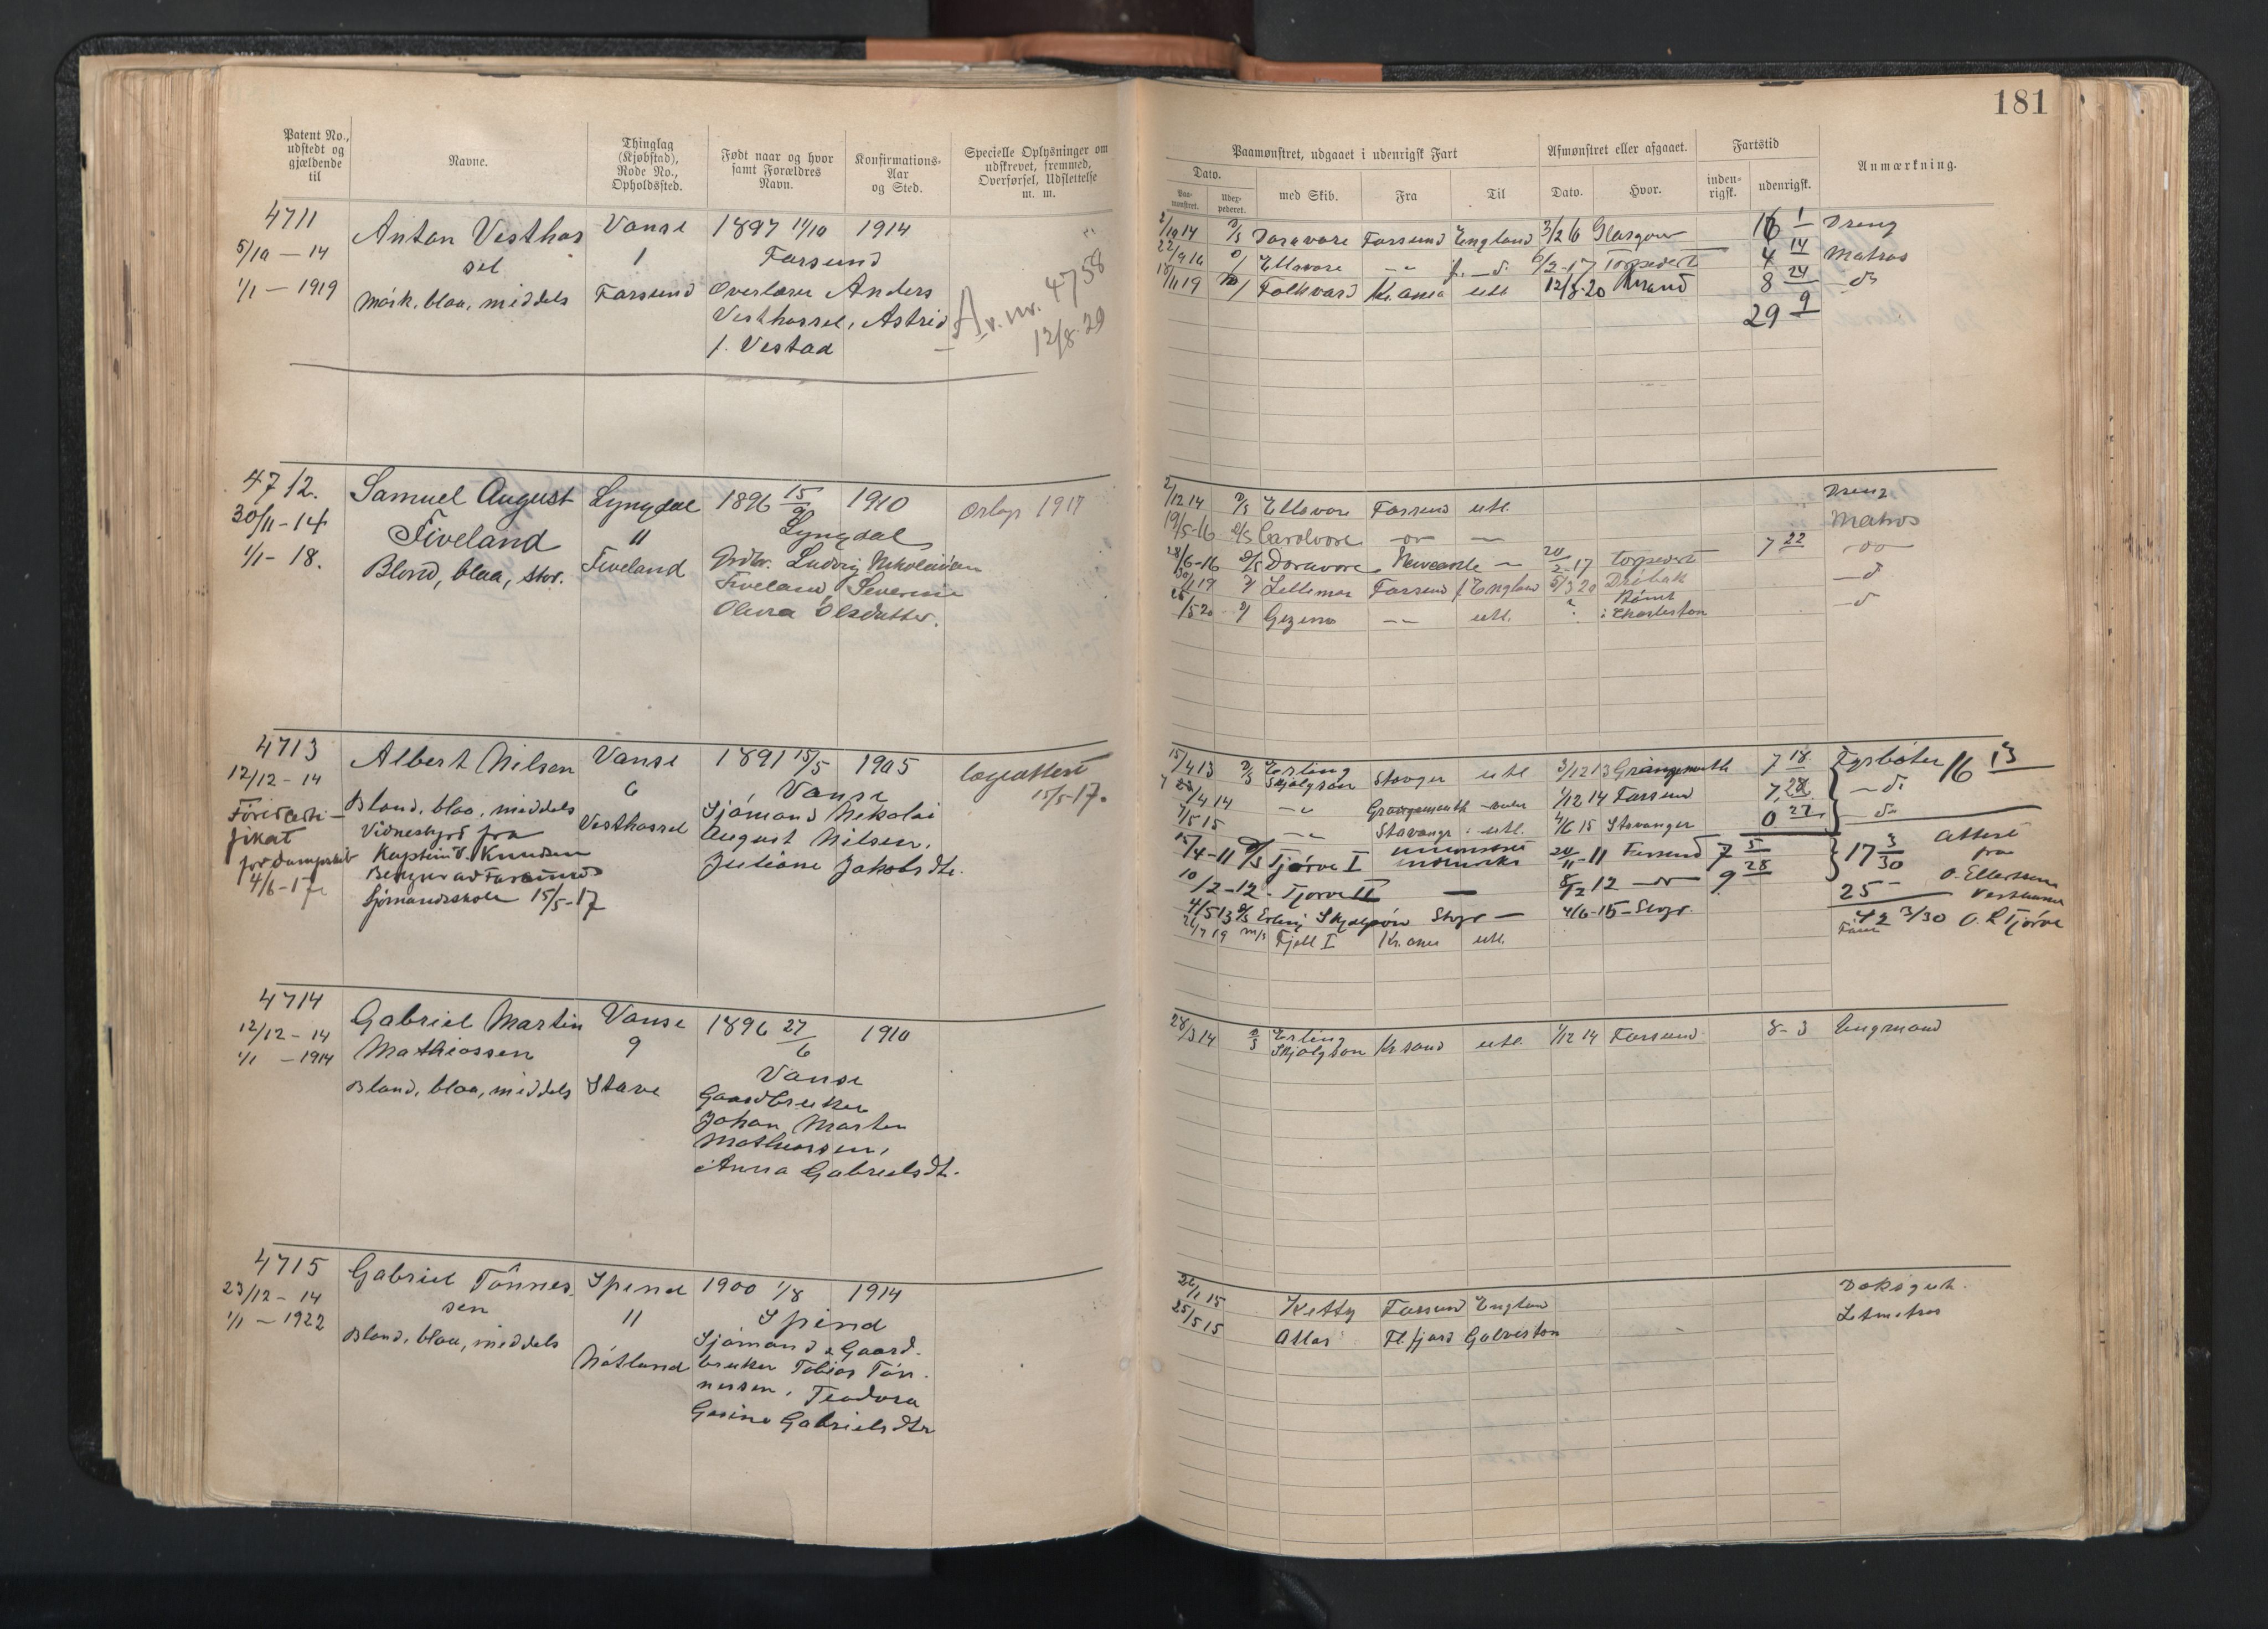 181
Patent No., udstedt og gjældende til
Navne.
Thinglag (Kjøbstad), Rode No., Opholdssted.
Født naar og hvor samt Forældres Navn.
Konfirmations-Aar og Sted.
Specielle Oplysninger om udskrevet, fremmed, Overførsel, Udslettelse m. m.
Paamønstret, udgaaet i udenrigsk Fart
Dato.
Paa-mønstret.
med Skib.
Fra
Til
Afmønstret eller afgaaet.
Dato.
Hvor.
Fartstid
inden-rigsk.
udenrigsk.
Anmærkning.
4711
5/10 - 14
1/1 - 1919
Anton Vesthas
sel
Mørk, blaa, middels
Vanse
1
Farsund
1897 11/10 1914
Farsund
Overlærer Anders
Vesthassel, Astrid
f. Vestad
A. v. nr. 4758
12/8-29
2/10 14 Doravore Farsund England 3/2 6 Glasgow 16 1 Dreng
22/9 16 Ellavore -"- f. - d. 6/2-17 Torpedert 4 14 Matros
18/11 19 Folkvard Kr.ania utl 12/8-20 Krsand 8 24 do
29 9
4712.
30/11 - 14
1/1 - 18.
Samuel August
Fiveland
Blond, blaa, stor.
Lyngdal
11
Fiveland
1896 15/9 1910
Lyngdal
Grdbr. Ludvig Nikolaisen
Fiveland, Severine
Olava Olsdatter.
Orlogs 1917
2/12 14 D/S Ellavore Farsund utl. Dreng
19/5-16 D/S Carolvore -"- Matros
28/6-16 D/S Doravore Newcastle - 20/2-17 torpedert 7 22
19 Lillemor Farsund f. England 5/3 20 Drøbak - d
26/5 20 Gezina -"- utl. ? Rømt
i Charleston - d
4713
12/12 - 14
Förercerti-
fikat
for dampskib
4/6-17
Albert Nilsen
Blond, blaa, middels
Vidnesbyrd fra
Kaptein V. Knudsen
Bevner ad Farsunds
Sjømandsskole 15/5-17
Vanse
6
Vesthassel
1891 15/5 1905
Vanse
Sjømand Nikolai
August Nilsen,
Juliane Jakobsdtr.
Lægeattest
15/5-17.
15/4 13 D/S Erling
Skjalgson Stavger utl 3/12 13 Grangemouth 7 18 Fyrbøter 16 13
4 14 -"- Grangemouth 1/12 14 Farsund 7,28 - d.
7/5 15 -"- Stavanger utl. 4/6 15 Stavanger 0 27 - d.
15/4-11 D/S Tjørve I 20/11-11 Farsund 7 5 17 3/30 Attest
fra
10/2-12 - Tjørve II - 8/12 12 9 28 25 O. Ellertsen
4/5 13 D/S Erling Skjalgsøn Stvgr - 4/6-15 - Stvgr. Vestnes
42 3/30 O. R Tjørve
21/7 19 m/s Fjell I Kr.ania utl.
4714
12/12 - 14
1/1 - 1914
Gabriel Martin
Mathiassen
Blond, blaa, middels
Vanse
9
Stave
1896 27/6 1910
Vanse
Gaardbruker
Johan Martin
Mathiassen,
Anna Gabrielsdt.
28/3 14 D/S Erling
Skjalgson Krsand utl. 1/12 14 Farsund 8 - 3 Ungmand
4715
23/12 - 14
1/1 - 1922
Gabriel Tønnes
sen
Blond, blaa, middels
Spind
11
Nøtland
1900 1/8 1914
Spind
Sjømand & Gaard-
bruker Tobias Tøn-
nessen, Teodora
Gesine Gabrielsdtr
26/1 15 Ketty Farsund England Doksgut.
25/5 15 Atlas Fl.fjord Galveston Letmatros